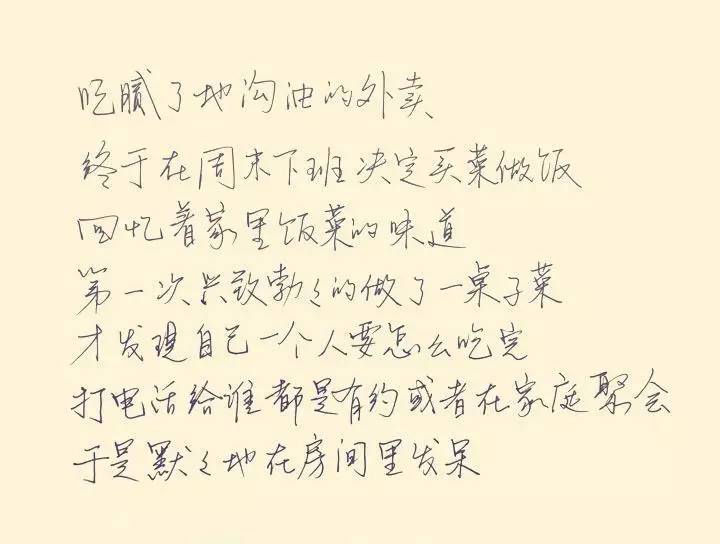 吃腻了地沟油的外卖
终于在周末下班决定买菜做饭
回忆着家里饭菜的味道
第一次兴致勃々的做了一桌子菜
才发现自己一个人要怎么吃完
打电话给谁都是有约或者在家庭聚会
于是默々地在房间里发呆